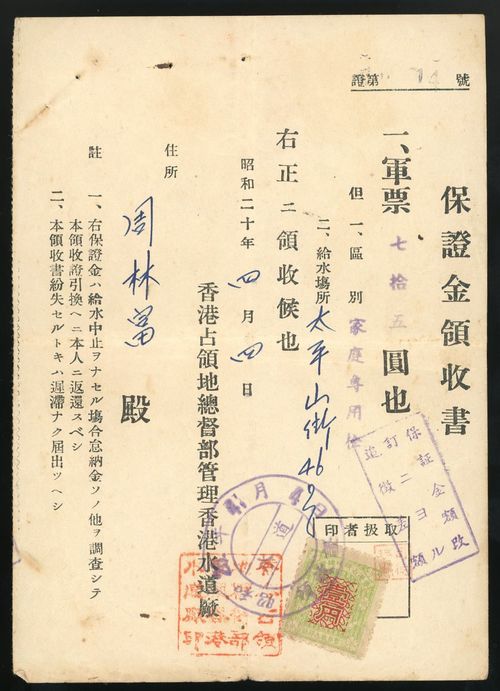 證第 14 號
保證金領收書
一、軍票 七拾五 圓也
但 一、區別 家庭専用
二、給水場所 太平山街46
右正ニ領收候也
昭和二十年 四 月 四 日
香港占領地總督部管理香港水道廠
住所
周林富 殿
註 一、右保證金ハ給水中止ヲナセル場合怠納金ソノ他ヲ調査シテ
本領收證引換ヘニ本人ニ返還スベシ
二、本領收書紛失セルトキハ遲滯ナク屆出ツヘシ
取扱者印
保証金額改
訂ニヨル
追徴
壹円